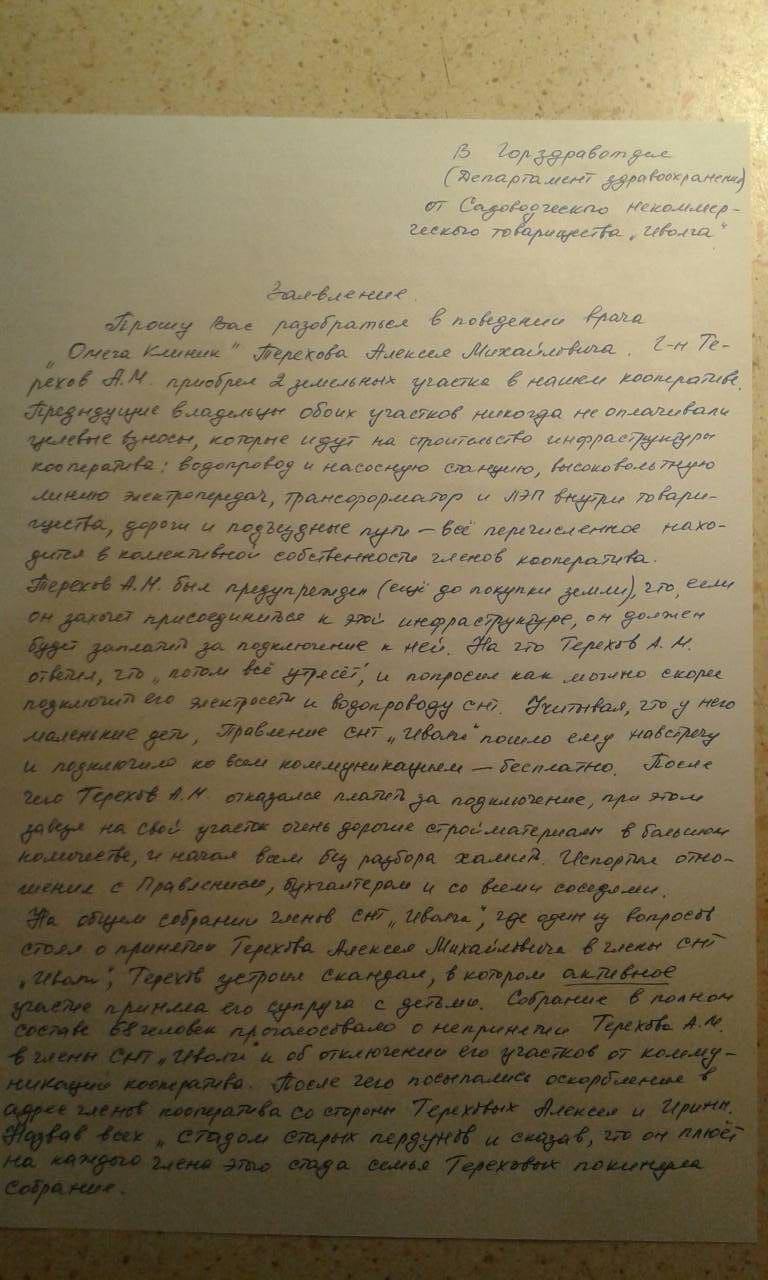 В Горздравотдел
(Департамент здравоохранения)
от Садоводческого некоммер-
ческого товарищества „Иволга"
Заявление.
Прошу Вас разобраться в поведении врача
„Омега Клиник" Терехова Алексея Михайловича. Г-н Те-
рехов А.М. приобрел 2 земельных участка в нашем кооперативе.
Предыдущие владельцы обоих участков никогда не оплачивали
целевые взносы, которые идут на строительство инфраструктуры
кооператива: водопровод и насосную станцию, высоковольтную
линию электропередач, трансформатор и ЛЭП внутри товари-
щества, дороги и подъездные пути – всё перечисленное нахо-
дится в колективной собственности членов кооператива.
Терехов А.М. был предупрежден (ещё до покупки земли), что, если
он захочет присоединиться к этой инфраструктуре, он должен
будет заплатить за подключение к ней. На что Терехов А.М.
ответил, что „потом всё утрясёт", и попросил как можно скорее
подключить его электросети и водопроводу СНТ. Учитывая, что у него
маленькие дети, Правление СНТ „Иволга" пошло ему навстречу
и подключило ко всем коммуникациям – бесплатно. После
чего Терехов А.М. отказался платить за подключение, при этом
завёз на свой участок очень дорогие стройматериалы в большом
количестве, и начал всем без разбора хамить. Испортил отно-
шения с Правлением, бухгалтером и со всеми соседями.
На общем собрании членов СНТ „Иволга", где один из вопросов
стоял о принятии Терехова Алексея Михайловича в члены СНТ
„Иволга", Терехов устроил скандал, в котором активное
участие приняла его супруга с детьми. Собрание в полном
составе 68 человек проголосовало о непринятии Терехова А.М.
в члены СНТ „Иволга" и об отключении его участков от комму-
никаций кооператива. После чего посыпались оскорбления в
адрес членов кооператива со стороны Тереховых Алексея и Ирины.
Назвав всех „стадом старых пердунов и сказав, что он плюёт
на каждого члена этого стада семья Тереховых покинула
собрание.